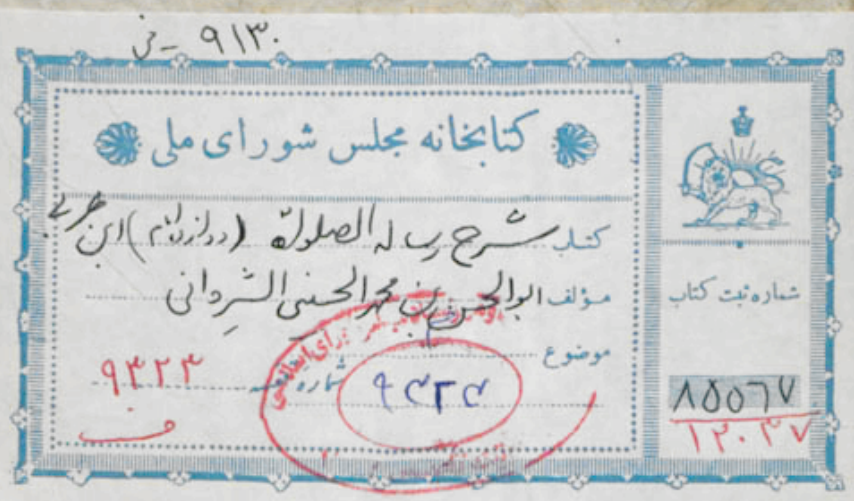 ۹۱۳۰ - ف
کتابخانه مجلس شورای ملی
کتاب شرح رساله الصلوة (دوازده امام) ابن عربی
مؤلف ابوالحسن بن محمد الحسنی الشروانی
موضوع
شماره قفسه
۹۳۲۳
۹۳۲۴
شماره ثبت کتاب
۸۵۵۶۷
۱۲۰۳۷